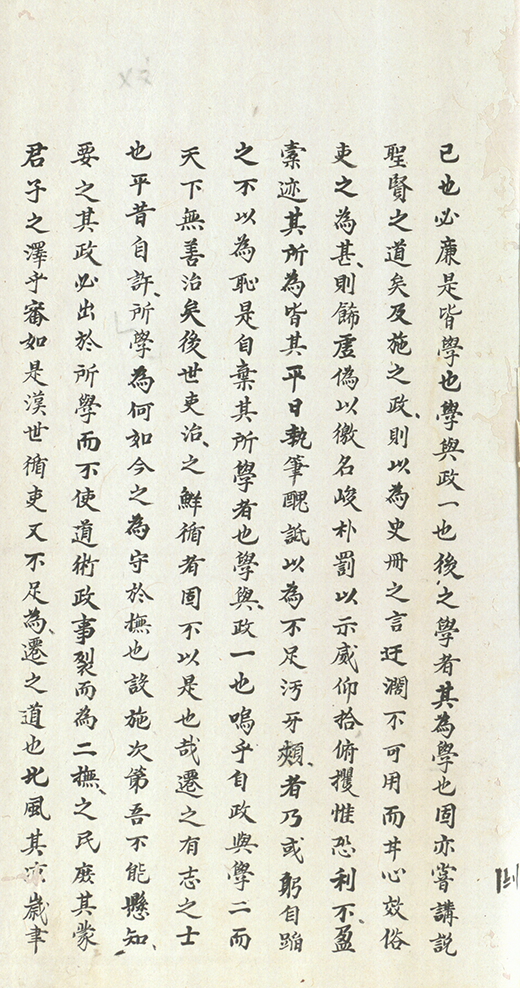 己也必廉是皆學也學與政一也後之學者其為學也固亦嘗講說
聖賢之道矣及施之政則以為史冊之言迂濶不可用而甘心效俗
吏之為甚則飾虛偽以徼名峻朴罰以示威仰拾俯攫惟恐利不盈
橐迹其所為皆其平日執筆醜詆以為不足汚牙頰者乃或躬自蹈
之不以為恥是自棄其所學者也學與政一也嗚乎自政與學二而
天下無善治矣後世吏治之鮮循者固不以是也哉遷之有志之士
也平昔自許所學為何如今之為守於撫也設施次第吾不能懸知
要之其政必出於所學而不使道術政事裂而為二撫之民庶其蒙
君子之澤乎審如是漢世循吏又不足為遷之道也北風其凉歲聿